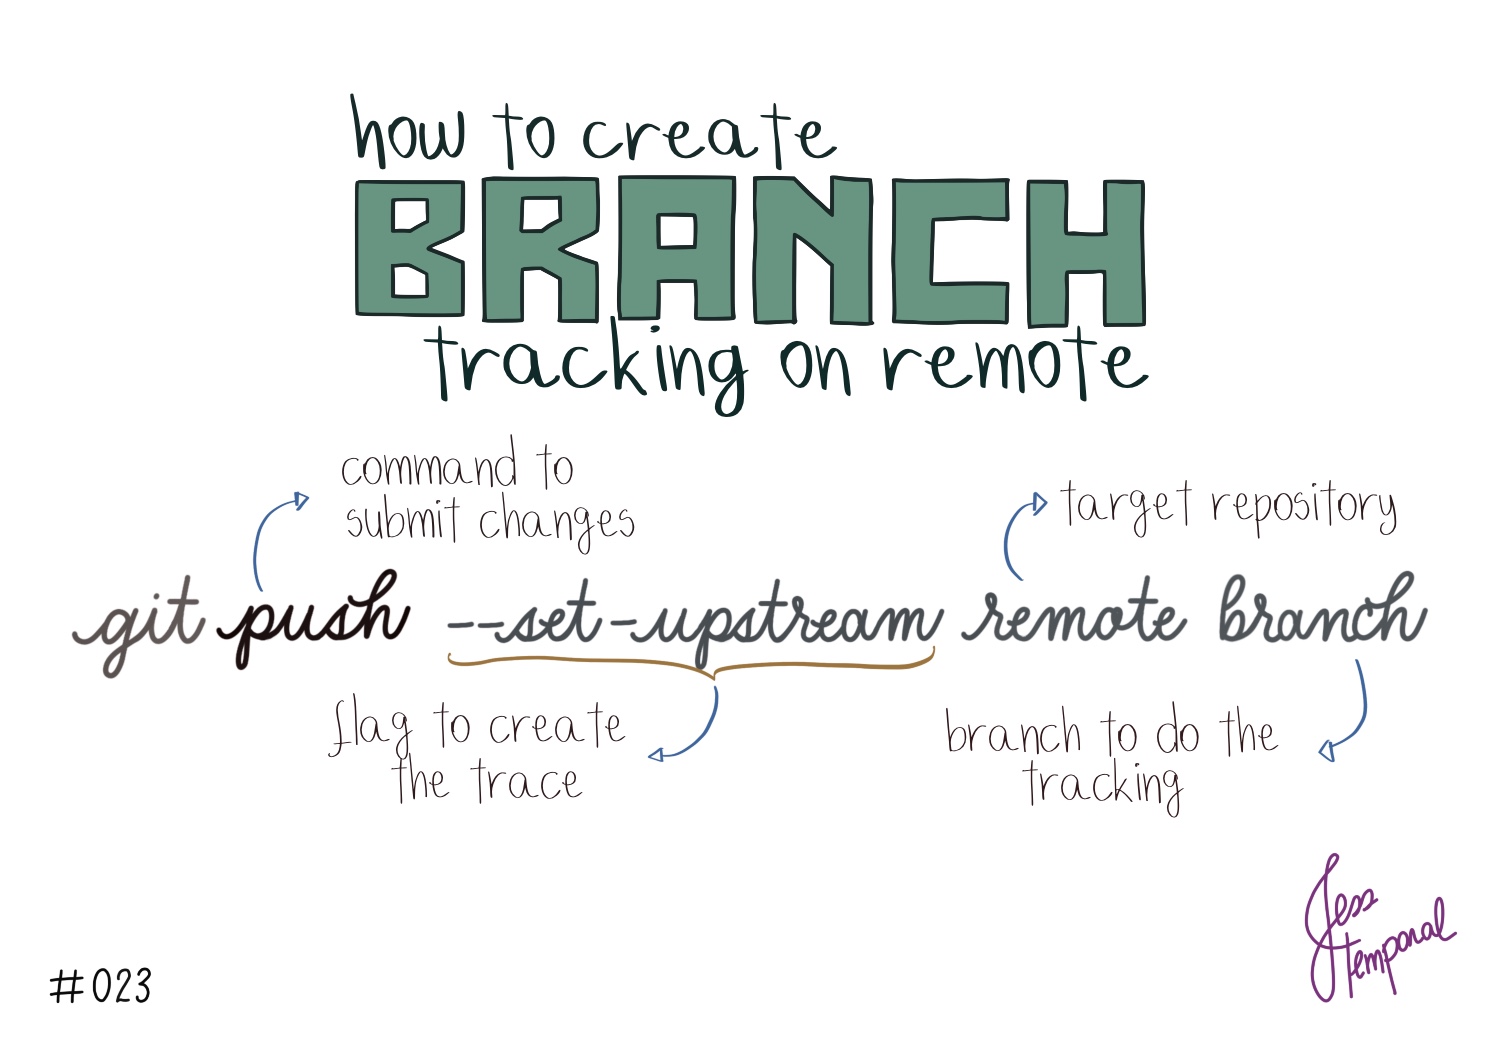 how to create
BRANCH
tracking on remote
command to
submit changes
target repository
git push --set-upstream remote branch
flag to create
the trace
branch to do the
tracking
Jess
temporal
#023